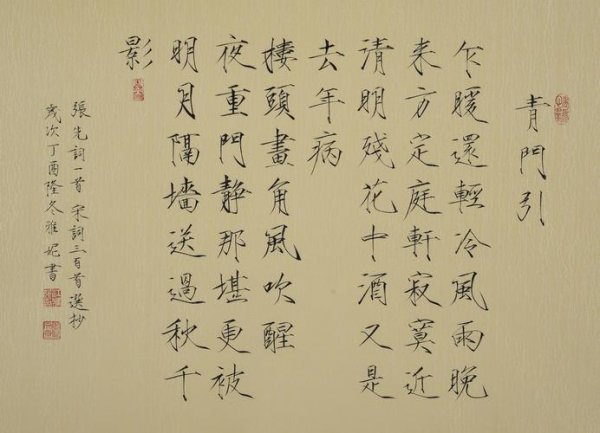 青門引
乍暖還輕冷風雨晚
来方定庭軒寂寞近
清明殘花中酒又是
去年病
樓頭畫角風吹醒
夜重門静那堪更被
明月隔墙送過秋千
影
張先詞一首 宋詞三百首選抄
歲次丁酉隆冬雅妮書